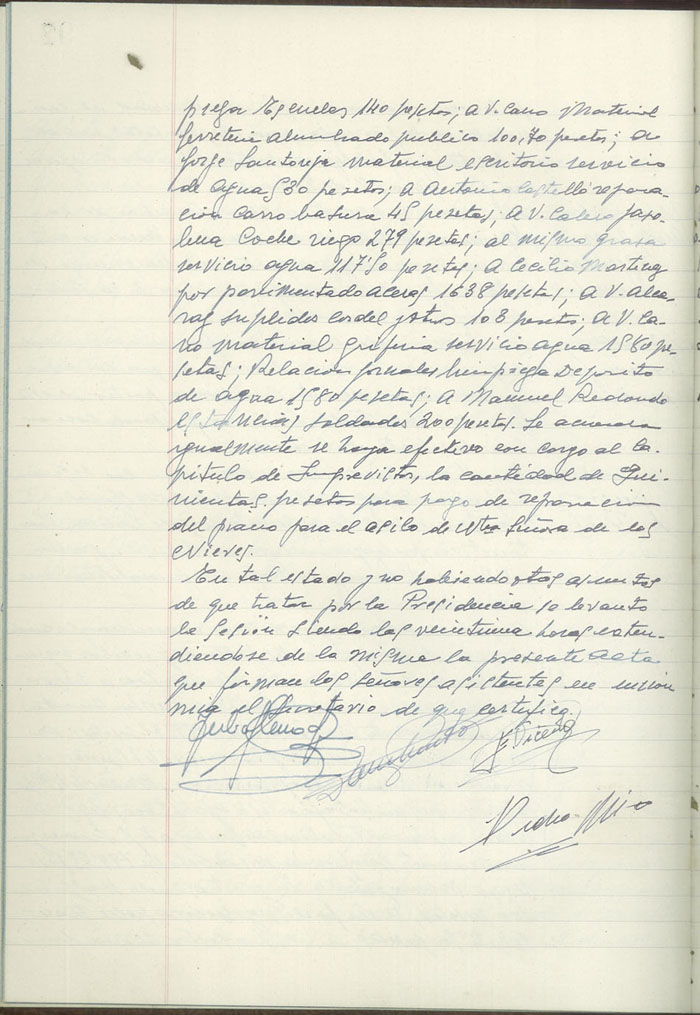 pieza Escuelas 140 pesetas; a V. Cano Material
ferreteria alumbrado publico 100,70 pesetas; a
Jorge Santonja material escritorio servicio
de agua 530 pesetas; a Antonio Castelló repara-
ción carro basura 45 pesetas; A V. Calero gaso-
lina Coche riego 279 pesetas; al mismo grasa
servicio agua 117'50 pesetas; A Cecilio Martinez
por pavimentado aceras 1638 pesetas; a V. Alca-
raz suplidos 108 pesetas; a V. Ca-
no material servicio agua 1580 pe-
setas; Relación jornales limpieza Deposito
de agua 1580 pesetas; A Manuel Redondo
estancias soldados 200 pesetas. Se acuerda
igualmente se haga efectivo con cargo al Ca-
pitulo de Imprevistos, la cantidad de Qui-
nientas pesetas para pago de reparación
del piano para el asilo de Ntra Señora de las
Nieves.
En tal estado y no habiendo otros asuntos
de que tratar por la Presidencia se levanto
la sesión siendo las veintiuna horas exten-
diendose de la misma la presente acta
que firman los señores asistentes en unión
mia el Secretario de que certifico.
Pedro Miró